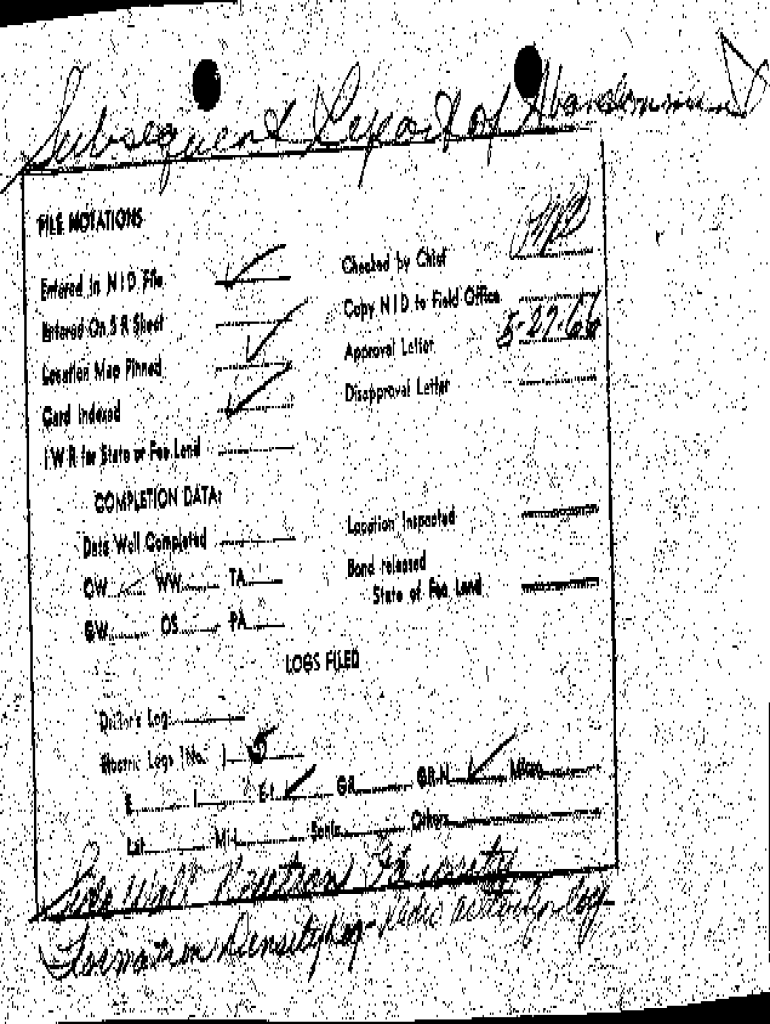 Subsequent Report of Abandonment
FILE NOTATIONS
Entered in N I D File ✓
Checked by Chief
Entered On S R Sheet
Copy N I D to Field Office
Location Map Pinned ✓
Approval Letter 5-27-66
Card Indexed ✓
Disapproval Letter
I W R for State or Fee Land
COMPLETION DATA:
Date Well Completed
Location Inspected
OW WW TA
Bond released
GW OS PA
State of Fee Land
LOGS FILED
Driller's Log
Electric Logs (No. ) 5
E I E-I ✓ GR GR-N ✓ Micro
Lat. Mi-L Sonic Others
Side Wall Neutron Porosity
Formation Density Log - Radio activity log